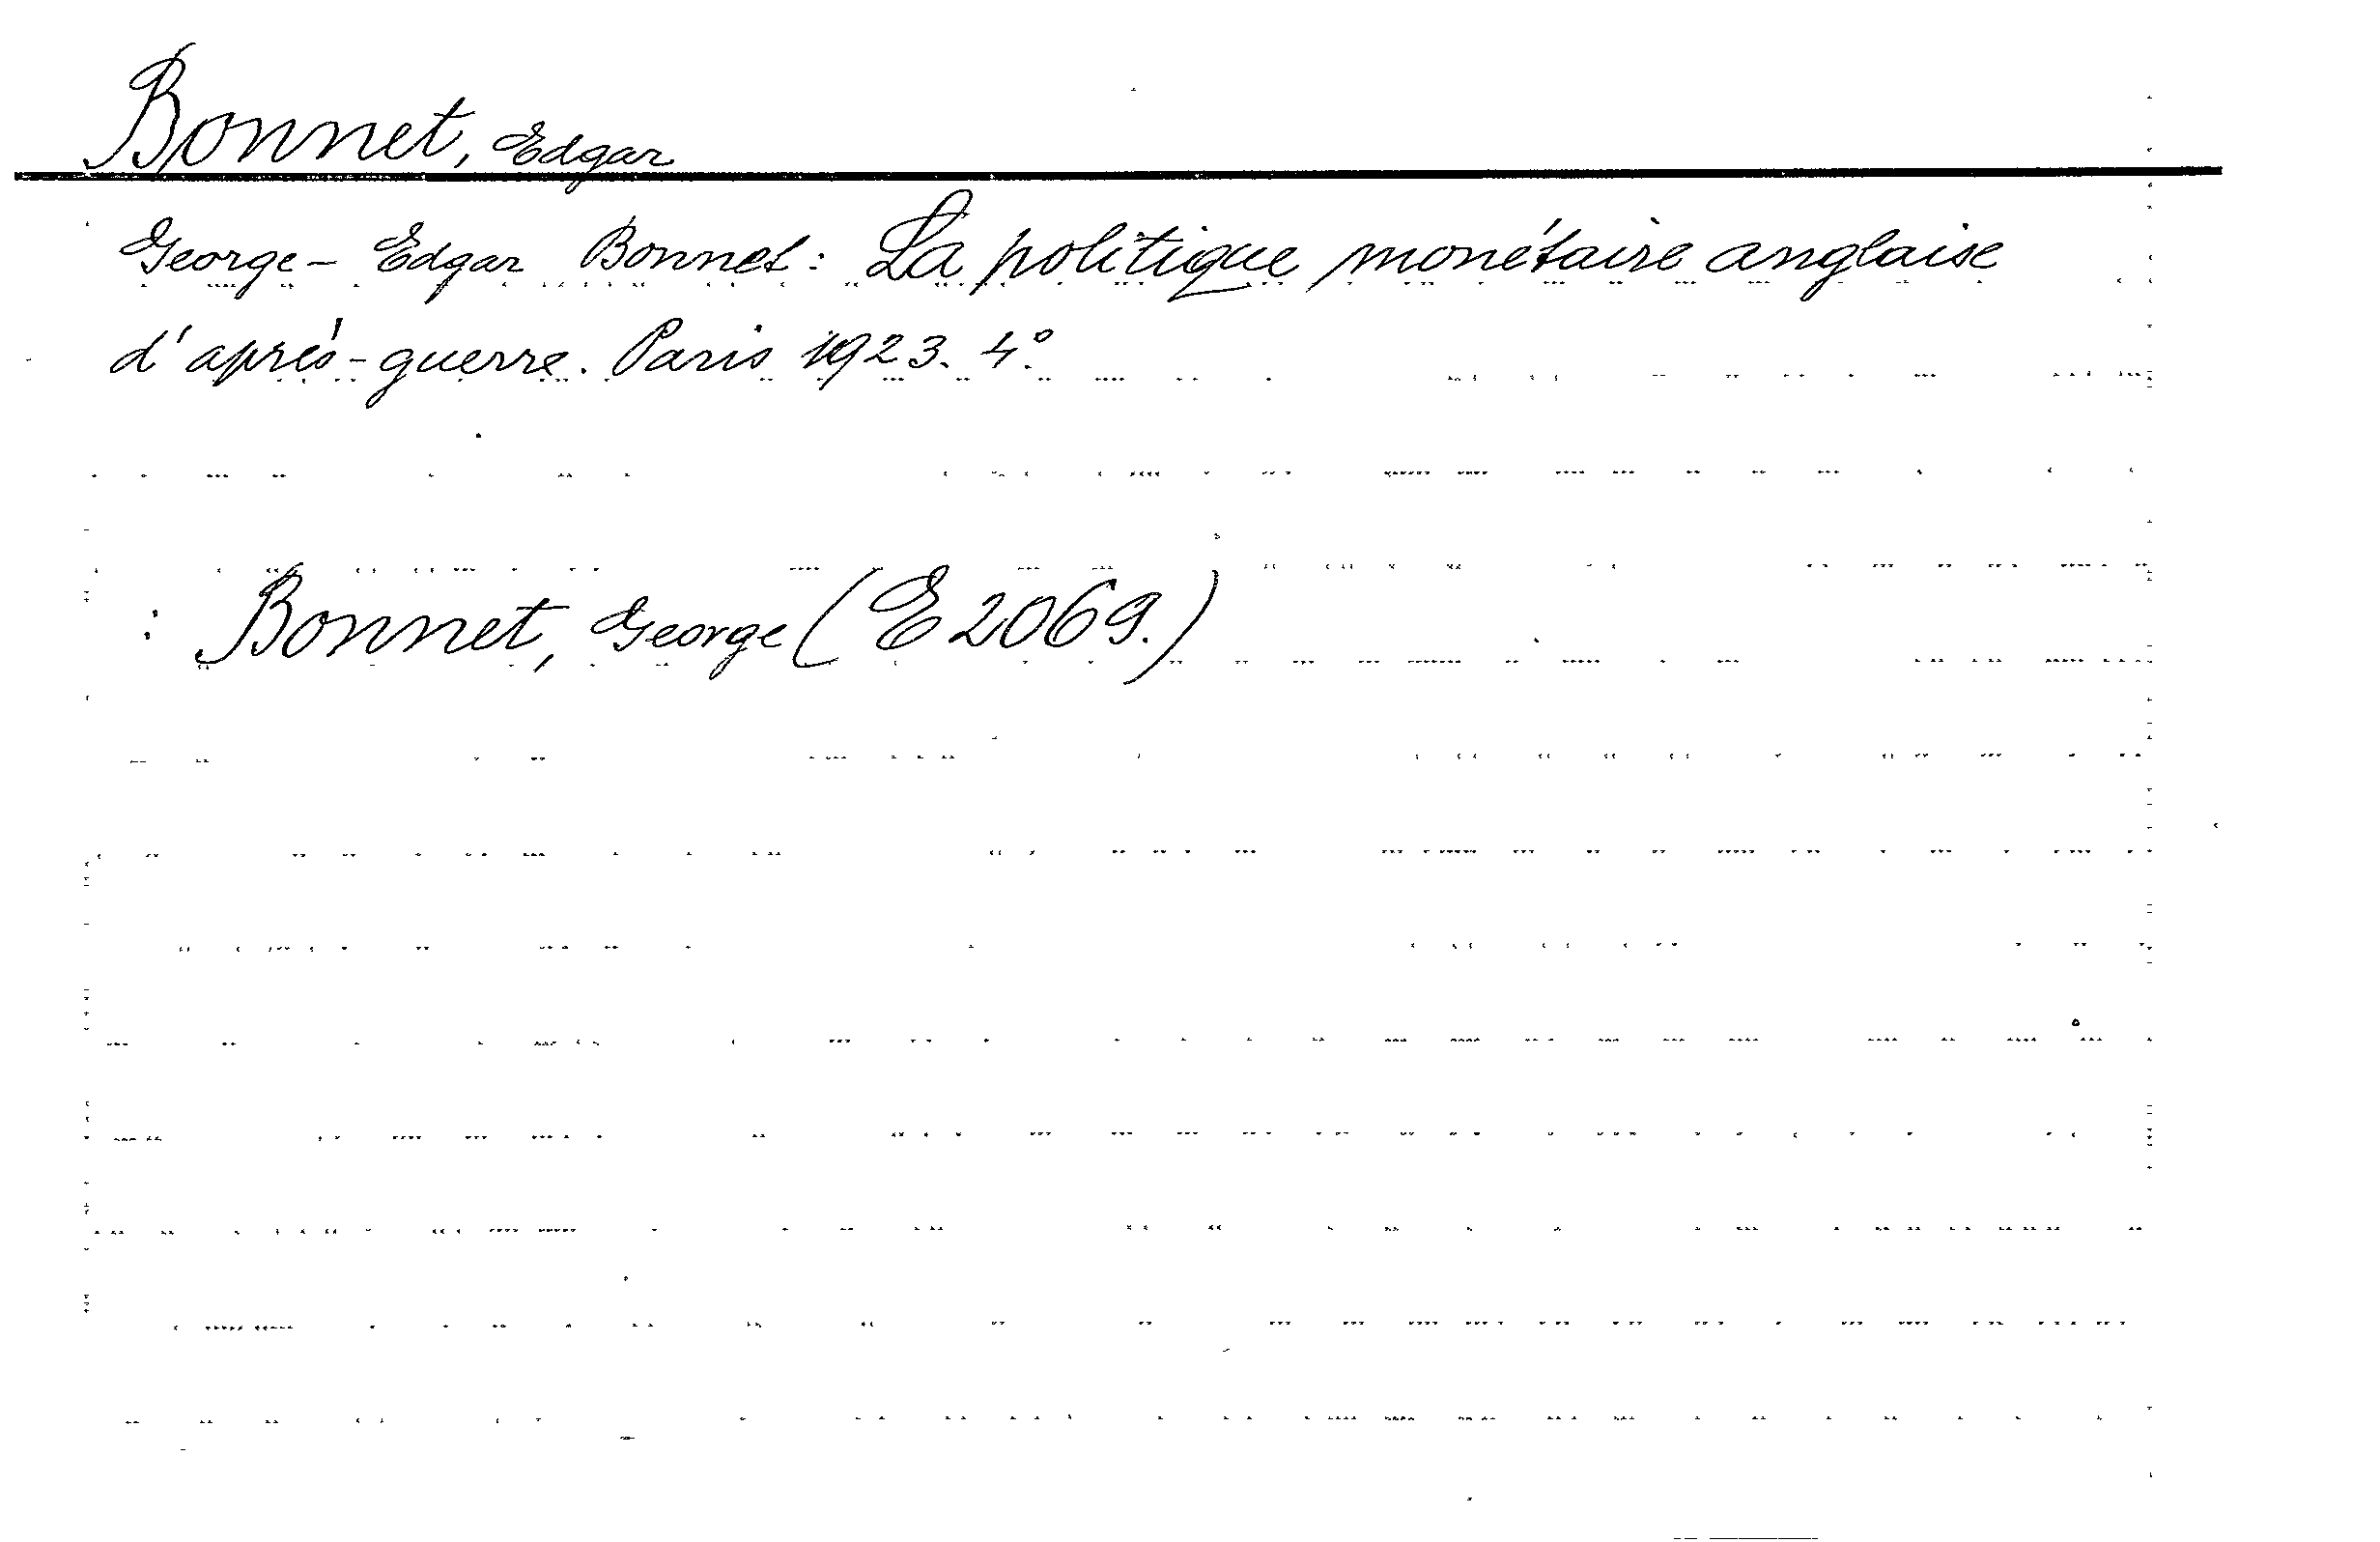 Bonnet, Edgar
George-Edgar Bonnet: La politique monétaire anglaise
d'après-guerre. Paris 1923. 4°.
: Bonnet, George (E 2069.)